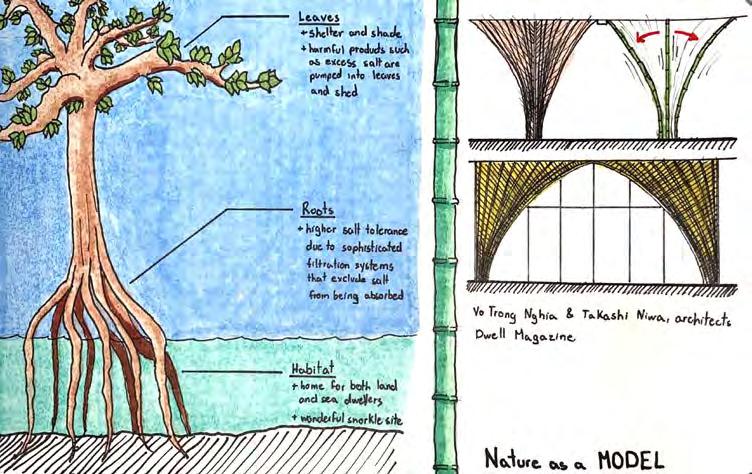 Leaves
+ shelter and shade
+ harmful products such
as excess salt are
pumped into leaves
and shed
Roots
+ higher salt tolerance
due to sophisticated
filtration systems
that exclude salt
from being absorbed
Habitat
+ home for both land
and sea dwellers
+ wonderful snorkle site
Vo Trong Nghia & Takashi Niwa, architects
Dwell Magazine
Nature as a MODEL